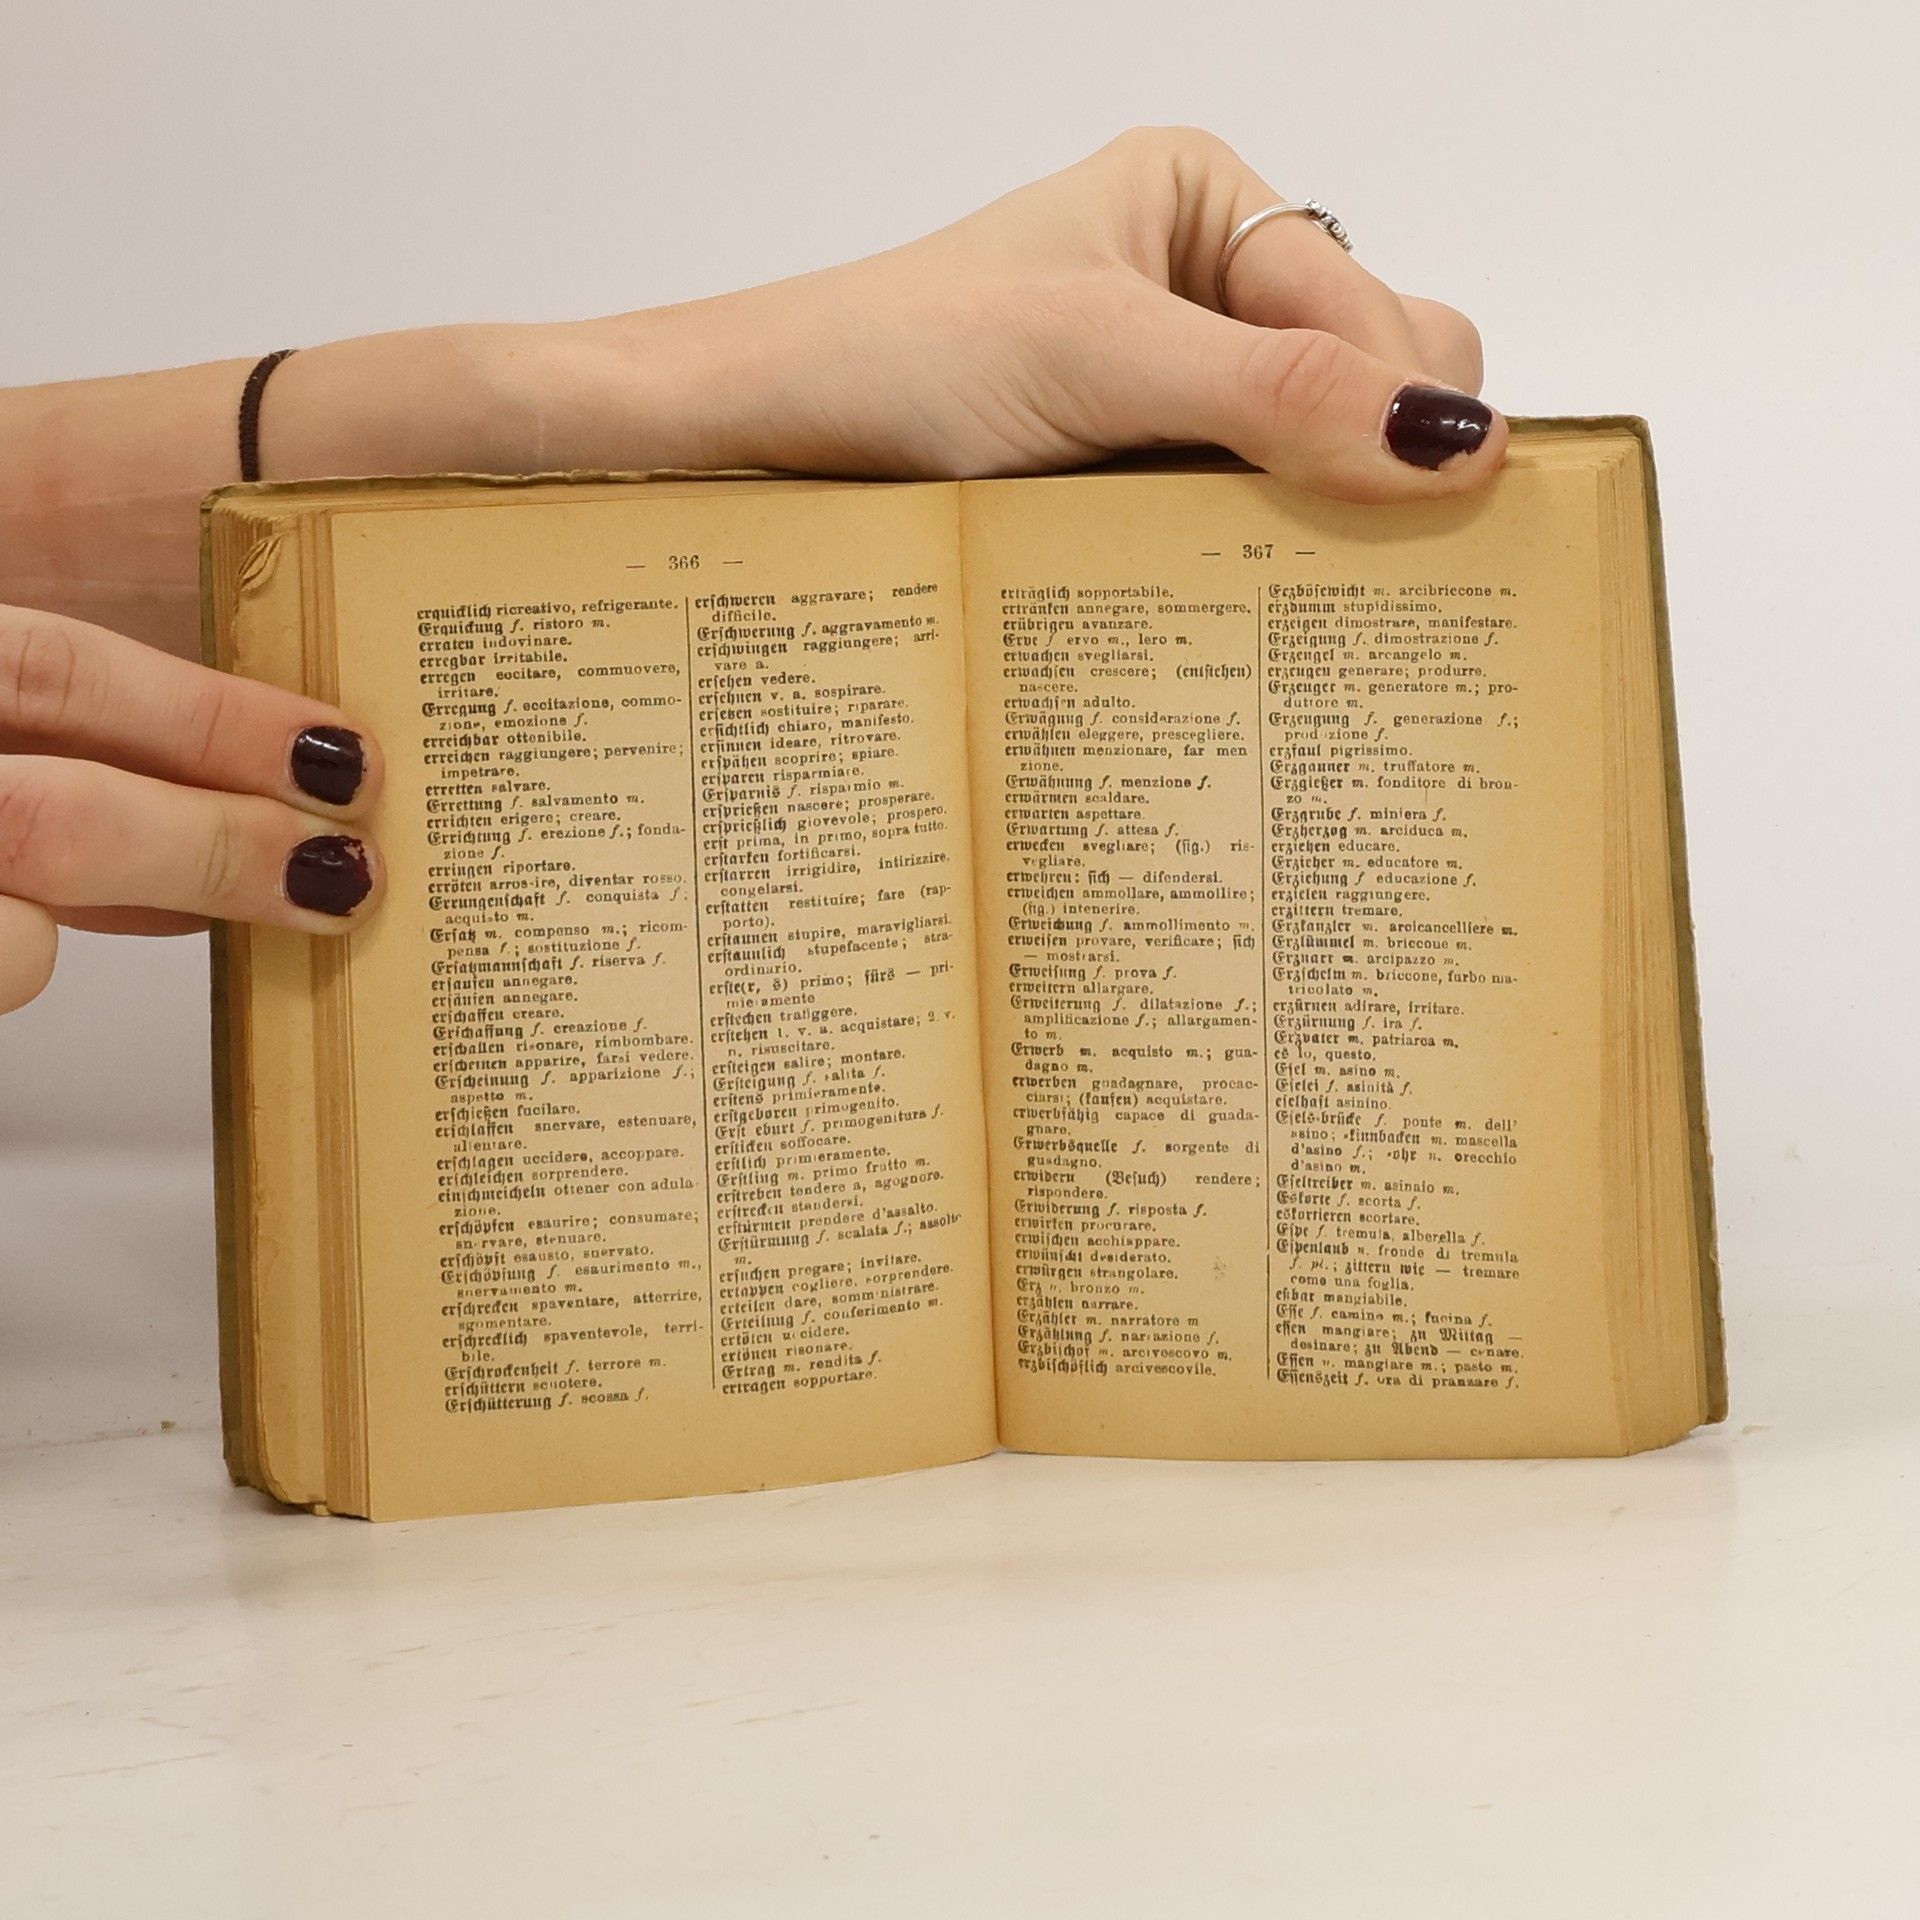 — 366 —
erquicklich ricreativo, refrigerante.
Erquickung f. ristoro m.
erraten indovinare.
erregbar irritabile.
erregen eccitare, commuovere,
irritare.
Erregung f. eccitazione, commo-
zione, emozione f.
erreichbar ottenibile.
erreichen raggiungere; pervenire;
impetrare.
erretten salvare.
Errettung f. salvamento m.
errichten erigere; creare.
Errichtung f. erezione f.; fonda-
zione f.
erringen riportare.
erröten arrossire, diventar rosso.
Errungenschaft f. conquista f.;
acquisto m.
Ersatz m. compenso m.; ricom-
pensa f.; sostituzione f.
Ersatzmannschaft f. riserva f.
ersaufen annegare.
ersäufen annegare.
erschaffen creare.
Erschaffung f. creazione f.
erschallen risonare, rimbombare.
erscheinen apparire, farsi vedere.
Erscheinung f. apparizione f.;
aspetto m.
erschießen fucilare.
erschlaffen snervare, estenuare,
allentare.
erschlagen uccidere, accoppare.
erschleichen sorprendere.
einschmeicheln ottener con adula-
zione.
erschöpfen esaurire; consumare;
snervare, stenuare.
erschöpft esausto, snervato.
Erschöpfung f. esaurimento m.,
snervamento m.
erschrecken spaventare, atterrire,
sgomentare.
erschrecklich spaventevole, terri-
bile.
Erschrockenheit f. terrore m.
erschüttern scuotere.
Erschütterung f. scossa f.
erschweren aggravare; rendere
difficile.
Erschwerung f. aggravamento m.
erschwingen raggiungere; arri-
vare a.
ersehen vedere.
ersehnen v. a. sospirare.
ersetzen sostituire; riparare.
ersichtlich chiaro, manifesto.
ersinnen ideare, ritrovare.
erspähen scoprire; spiare.
ersparen risparmiare.
Ersparnis f. risparmio m.
ersprießen nascere; prosperare.
ersprießlich giovevole; prospero.
erst prima, in primo, sopra tutto.
erstarken fortificarsi.
erstarren irrigidire, intirizzire,
congelarsi.
erstatten restituire; fare (rap-
porto).
erstaunen stupire, maravigliarsi.
erstaunlich stupefacente; stra-
ordinario.
erste(r, s) primo; fürs — pri-
mieramente
erstechen trafiggere.
erstehen 1. v. a. acquistare; 2. v.
n. risuscitare.
ersteigen salire; montare.
Ersteigung f. salita f.
erstens primieramente.
erstgeboren primogenito.
Erst eburt f. primogenitura f.
ersticken soffocare.
erstlich primieramente.
Erstling m. primo frutto m.
erstreben tendere a, agognare.
erstrecken stendersi.
erstürmen prendere d'assalto.
Erstürmung f. scalata f.; assolto
m.
ersuchen pregare; invitare.
ertappen cogliere, sorprendere.
erteilen dare, somministrare.
Erteilung f. conferimento m.
ertöten uccidere.
ertönen risonare.
Ertrag m. rendita f.
ertragen sopportare.
— 367 —
erträglich sopportabile.
ertränken annegare, sommergere.
erübrigen avanzare.
Erve f ervo m., lero m.
erwachen svegliarsi.
erwachsen crescere; (entstehen)
nascere.
erwachsen adulto.
Erwägung f. considerazione f.
erwählen eleggere, prescegliere.
erwähnen menzionare, far men
zione.
Erwähnung f. menzione f.
erwärmen scaldare.
erwarten aspettare.
Erwartung f. attesa f.
erwecken svegliare; (fig.) ris-
vegliare.
erwehren: sich — difendersi.
erweichen ammollare, ammollire;
(fig.) intenerire.
Erweichung f. ammollimento m.
erweisen provare, verificare; sich
— mostrarsi.
Erweisung f. prova f.
erweitern allargare.
Erweiterung f. dilatazione f.;
amplificazione f.; allargamen-
to m.
Erwerb m. acquisto m.; gua-
dagno m.
erwerben guadagnare, procac-
ciarsi; (kaufen) acquistare.
erwerbsfähig capace di guada-
gnare.
Erwerbsquelle f. sorgente di
guadagno.
erwidern (Besuch) rendere;
rispondere.
Erwiderung f. risposta f.
erwirken procurare.
erwischen acchiappare.
erwünscht desiderato.
erwürgen strangolare.
Erz n. bronzo m.
erzählen narrare.
Erzähler m. narratore m
Erzählung f. narrazione f.
Erzbischof m. arcivescovo m.
erzbischöflich arcivescovile.
Erzbösewicht m. arcibriccone m.
erzdumm stupidissimo.
erzeigen dimostrare, manifestare.
Erzeigung f. dimostrazione f.
Erzengel m. arcangelo m.
erzeugen generare; produrre.
Erzeuger m. generatore m.; pro-
duttore m.
Erzeugung f. generazione f.;
produzione f.
erzfaul pigrissimo.
Erzgauner m. truffatore m.
Erzgießer m. fonditore di bron-
zo m.
Erzgrube f. miniera f.
Erzherzog m. arciduca m.
erziehen educare.
Erzieher m. educatore m.
Erziehung f educazione f.
erzielen raggiungere.
erzittern tremare.
Erzkanzler m. arcicancelliere m.
Erzlümmel m. briccone m.
Erznarr m. arcipazzo m.
Erzschelm m. briccone, furbo ma-
tricolato m.
erzürnen adirare, irritare.
Erzürnung f. ira f.
Erzvater m. patriarca m.
es lo, questo.
Esel m. asino m.
Eselei f. asinità f.
eselhaft asinino.
Esels-brücke f. ponte m. dell'
asino; -kinnbacken m. mascella
d'asino f.; -ohr n. orecchio
d'asino m.
Eseltreiber m. asinaio m.
Eskorte f. scorta f.
eskortieren scortare.
Espe f. tremula, alberella f.
Espenlaub n. fronde di tremula
f. pl.; zittern wie — tremare
come una foglia.
eßbar mangiabile.
Esse f. camino m.; fucina f.
essen mangiare; zu Mittag —
desinare; zu Abend — cenare.
Essen n. mangiare m.; pasto m.
Essenszeit f. ora di pranzare f.